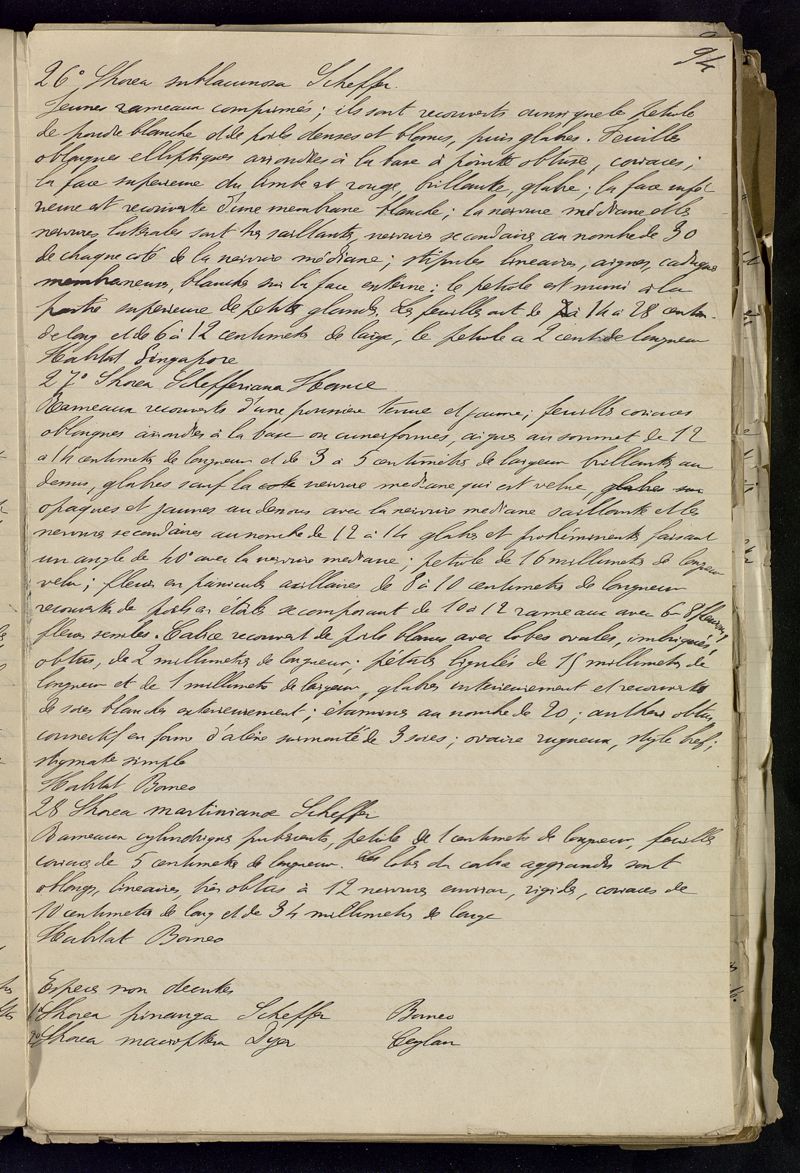 94
26° Shorea sublacunosa Scheffer.
Jeunes rameaux comprimés; ils sont recouverts ainsi que le petiole
de poudre blanche et de poils denses et blancs, puis glabres. Feuilles
oblongues elliptiques arrondies à la base à pointe obtuse, coriaces;
la face superieure du limbe est rouge, brillante, glabre; la face infé
rieure est recouverte d'une membrane blanche; la nervure médiane et les
nervures laterales sont très saillantes, nervures secondaires au nombre de 30
de chaque coté de la nervure médiane; stipules lineaires, aigues, caduques
membraneuses, blanches sur la face externe; le petiole est muni à la
partie superieure de petites glandes. Les feuilles ont de 14 à 28 centim.
de long et de 6 à 12 centimets de large, le petiole a 2 cent de longueur
Habitat Singapore
27° Shorea Schefferiana Hance
Rameaux recouverts d'une poussière tenue et jaune; feuilles coriaces
oblongues arrondies à la base ou cuneiformes, aigues au sommet de 12
à 14 centimets de longueur et de 3 à 5 centimets de largeur brillantes au
dessus, glabres sauf la nervure mediane qui est velue, glabres sur
opaques et jaunes au dessous avec la nervure mediane saillante et les
nervures secondaires au nombre de 12 à 14 glabres et proéminentes faisant
un angle de 40° avec la nervure mediane; petiole de 16 millimets de longueur
velu; fleurs en panicules axillaires de 8 à 10 centimets de longueur
recouvertes de poils en étoile se composant de 10 à 12 rameaux avec 6-8
fleurs sessiles. Calice recouvert de poils blancs avec lobes ovales, imbriqués,
obtus, de 2 millimetres de longueur; pétales ligulés de 15 millimets de
longueur et de 1 millimets de largeur, glabres interieurement et recouverts
de soies blanches exterieurement; étamines au nombre de 20; anthères obtus,
connectif en forme d'alène surmonté de 3 soies; ovaire rugueux, style bref;
stigmate simple
Habitat Borneo
28 Shorea martiniana Scheffer
Rameaux cylindriques pubescents, petiole de 1 centimets de longueur, feuilles
coriaces de 5 centimetes de longueur. Les lobes du calice aggrandis sont
oblongs, lineaires, très obtus à 12 nervures environ, rigides, coriaces de
10 centimetes de long et de 34 millimetes de large
Habitat Borneo
Especes non decrites
1° Shorea pinanga Scheffer Borneo
2° Shorea macroptera Dyer Ceylan